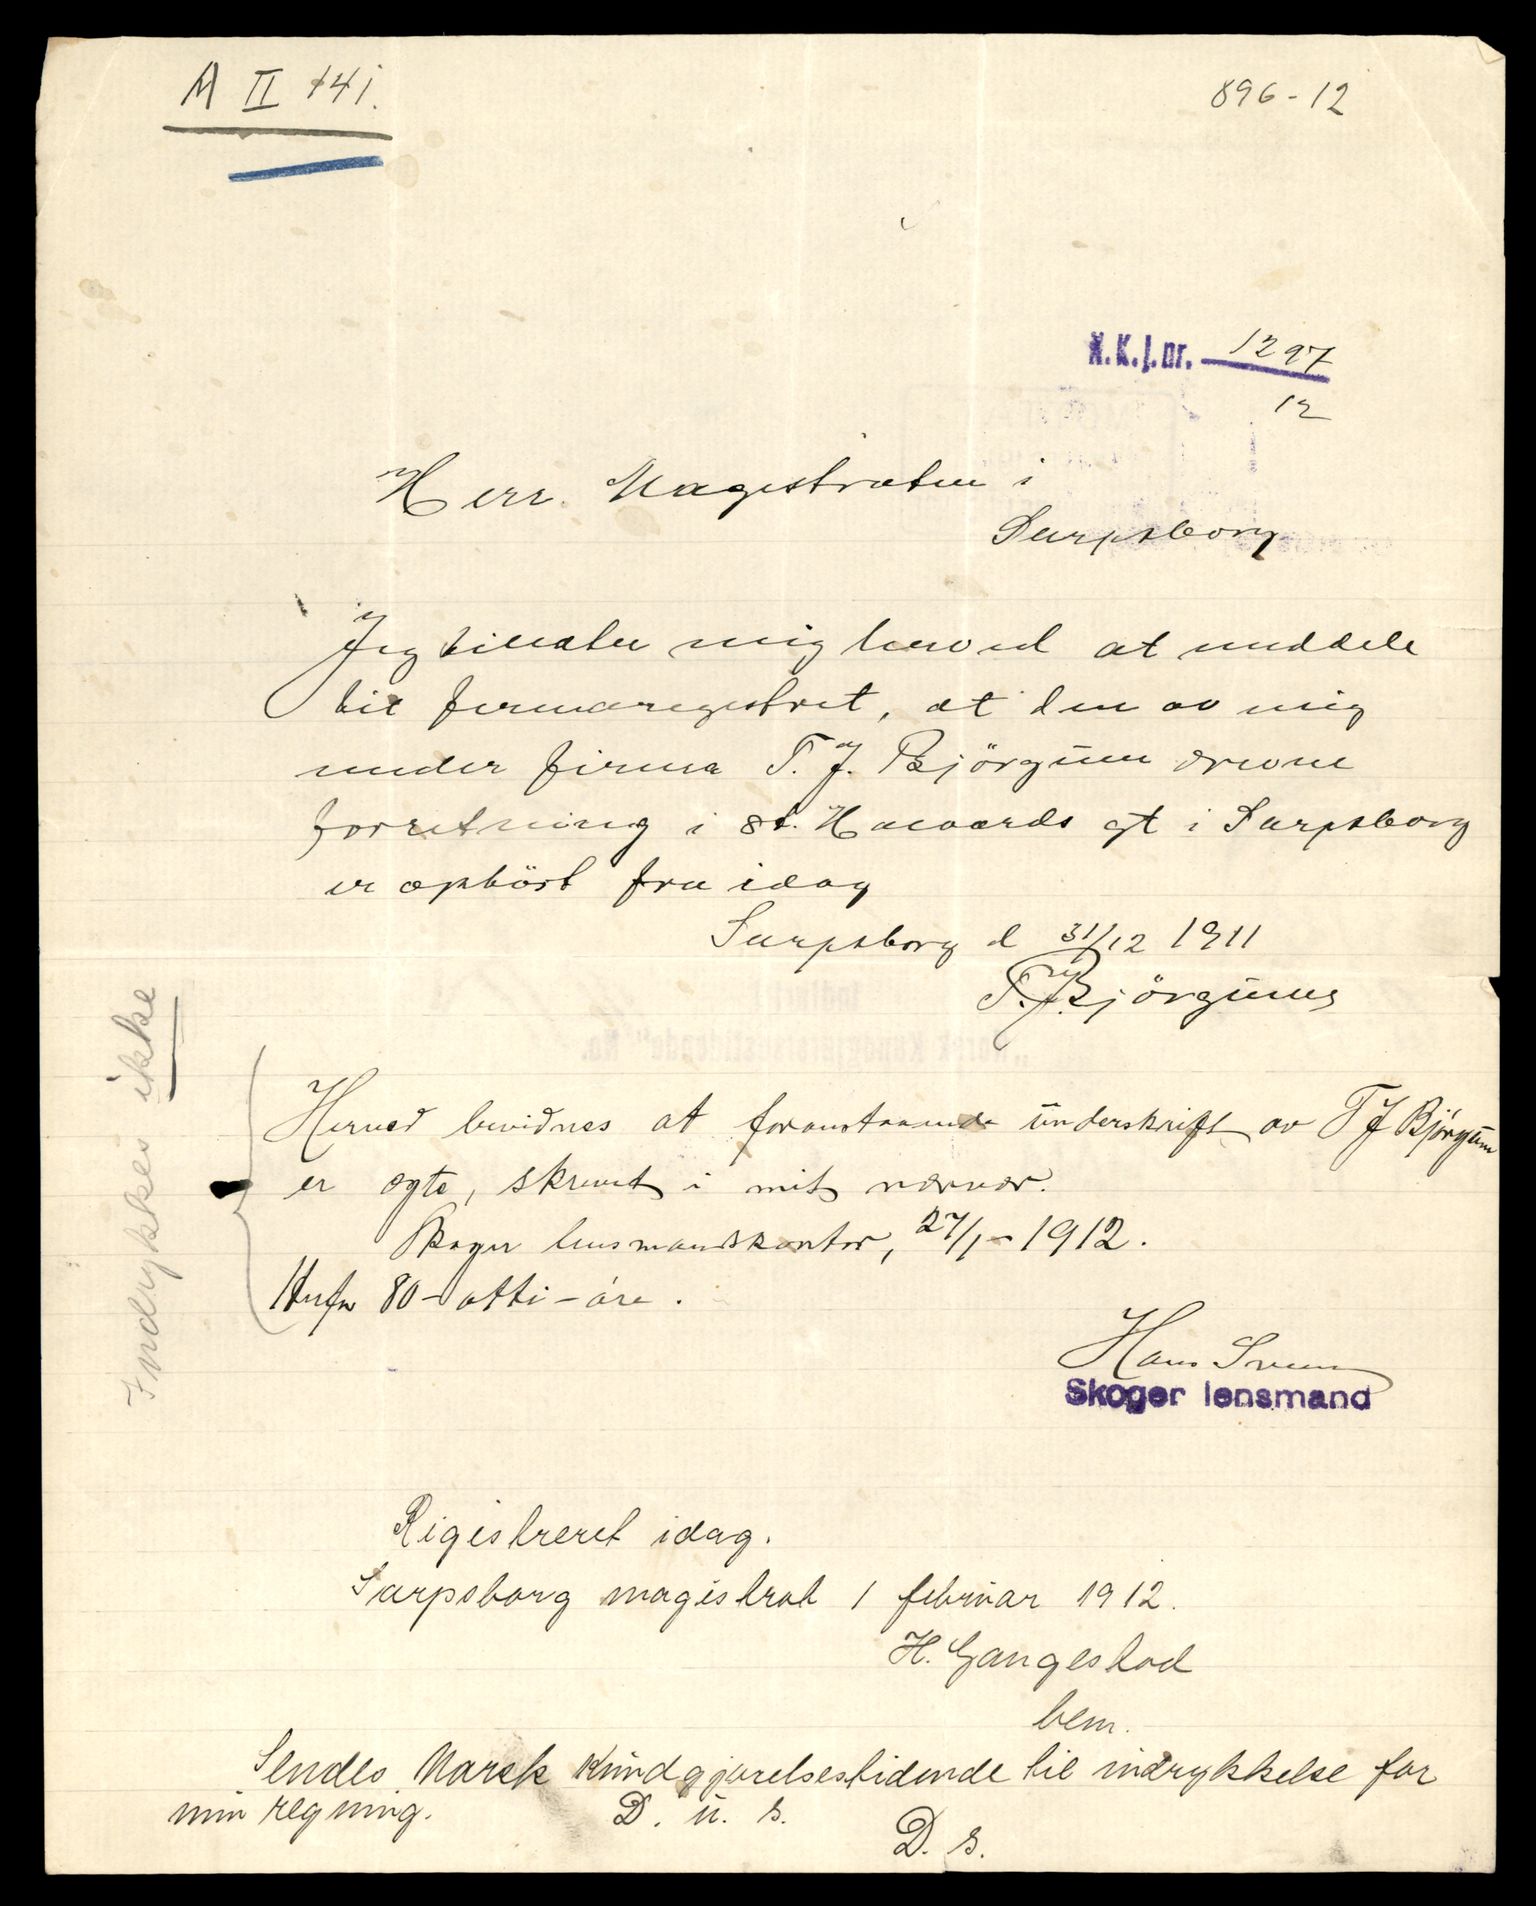 A II 141.
896-12
N.K.j.nr. 1297
12
Herr. Magistraten i
Sarpsborg
Jeg tillater mig herved at meddele
til firmaregistret, at den av mig
under firma T. J. Björgum drevne
forretning i St. Halvards gt i Sarpsborg
er ophört fra idag
Sarpsborg d 31/12 1911
T. J. Björgum
Herved bevidnes at foranstaaende underskrift av T J Björgum
er ægte, skrevet i mit nærvær.
Skoger lensmandskontor, 27/1-1912.
80-otti-øre.
Hans
Skoger lensmand
Indrykkes ikke
Registreret idag.
Sarpsborg magistrat 1 februar 1912.
H. Gangestad
bem.
Sendes Norsk Kundgjørelsestidende til indrykkelse for
min regning.
D. u. s.
D. s.